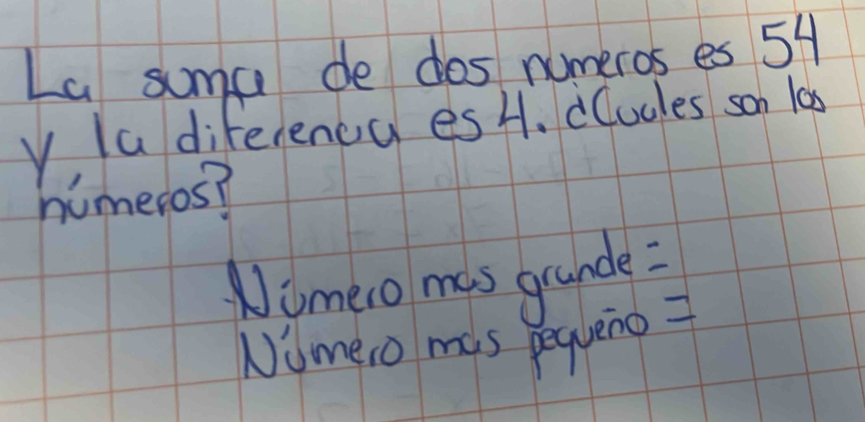 La suma de dos numeros es 54
y la diferencia es 4. ¿Cuales son los
números?
Número mas grande =
Número mas pequeño =